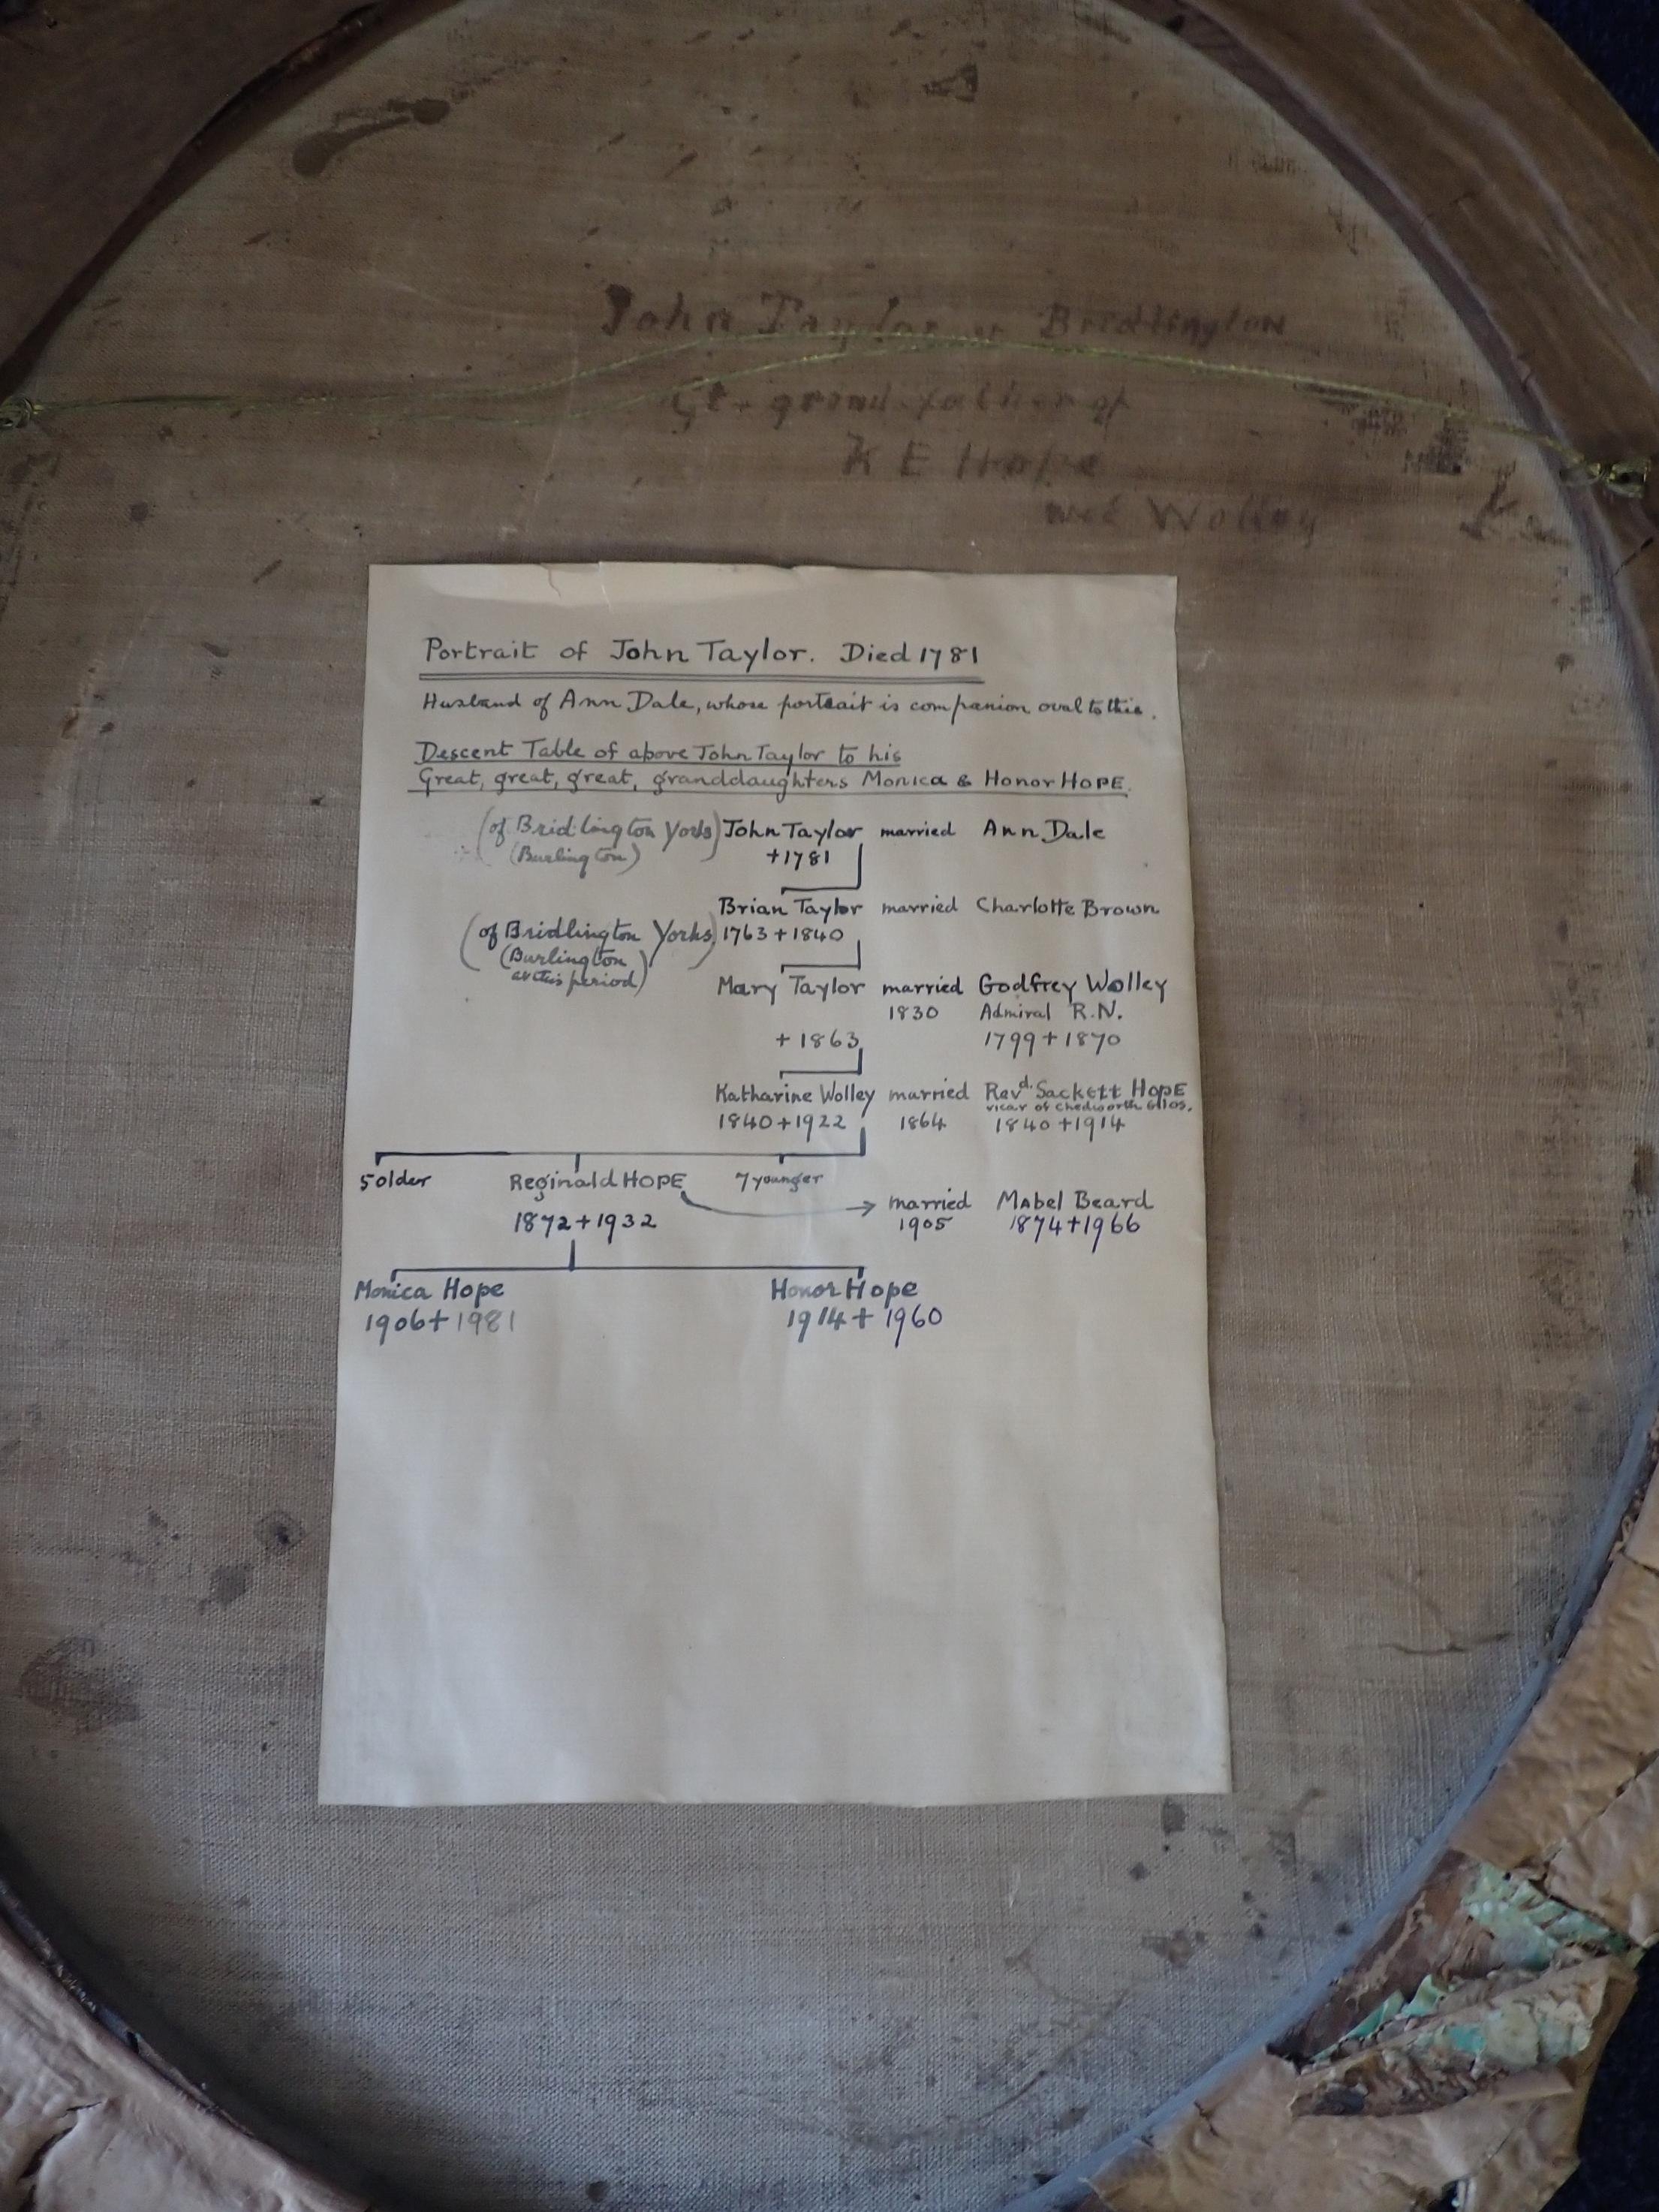 John Taylor of Bridlington
Gt. grand father of
K E Hope
née Wolley
Portrait of John Taylor. Died 1781
Husband of Ann Dale, whose portrait is companion oval to this.
Descent Table of above John Taylor to his
Great, great, great, granddaughters Monica & Honor HOPE.
(of Bridlington Yorks) John Taylor married Ann Dale
(Burlington) +1781
Brian Taylor married Charlotte Brown
(of Bridlington Yorks) 1763 + 1840
(Burlington
at this period)
Mary Taylor married Godfrey Wolley
1830 Admiral R.N.
+ 1863 1799 + 1870
Katharine Wolley married Revd. Sackett HOPE
vicar of Chedworth Glos.
1840 + 1922 1864 1840 + 1914
5 older Reginald HOPE 7 younger
married Mabel Beard
1872 + 1932 1905 1874 + 1966
Monica Hope Honor Hope
1906 + 1981 1914 + 1960